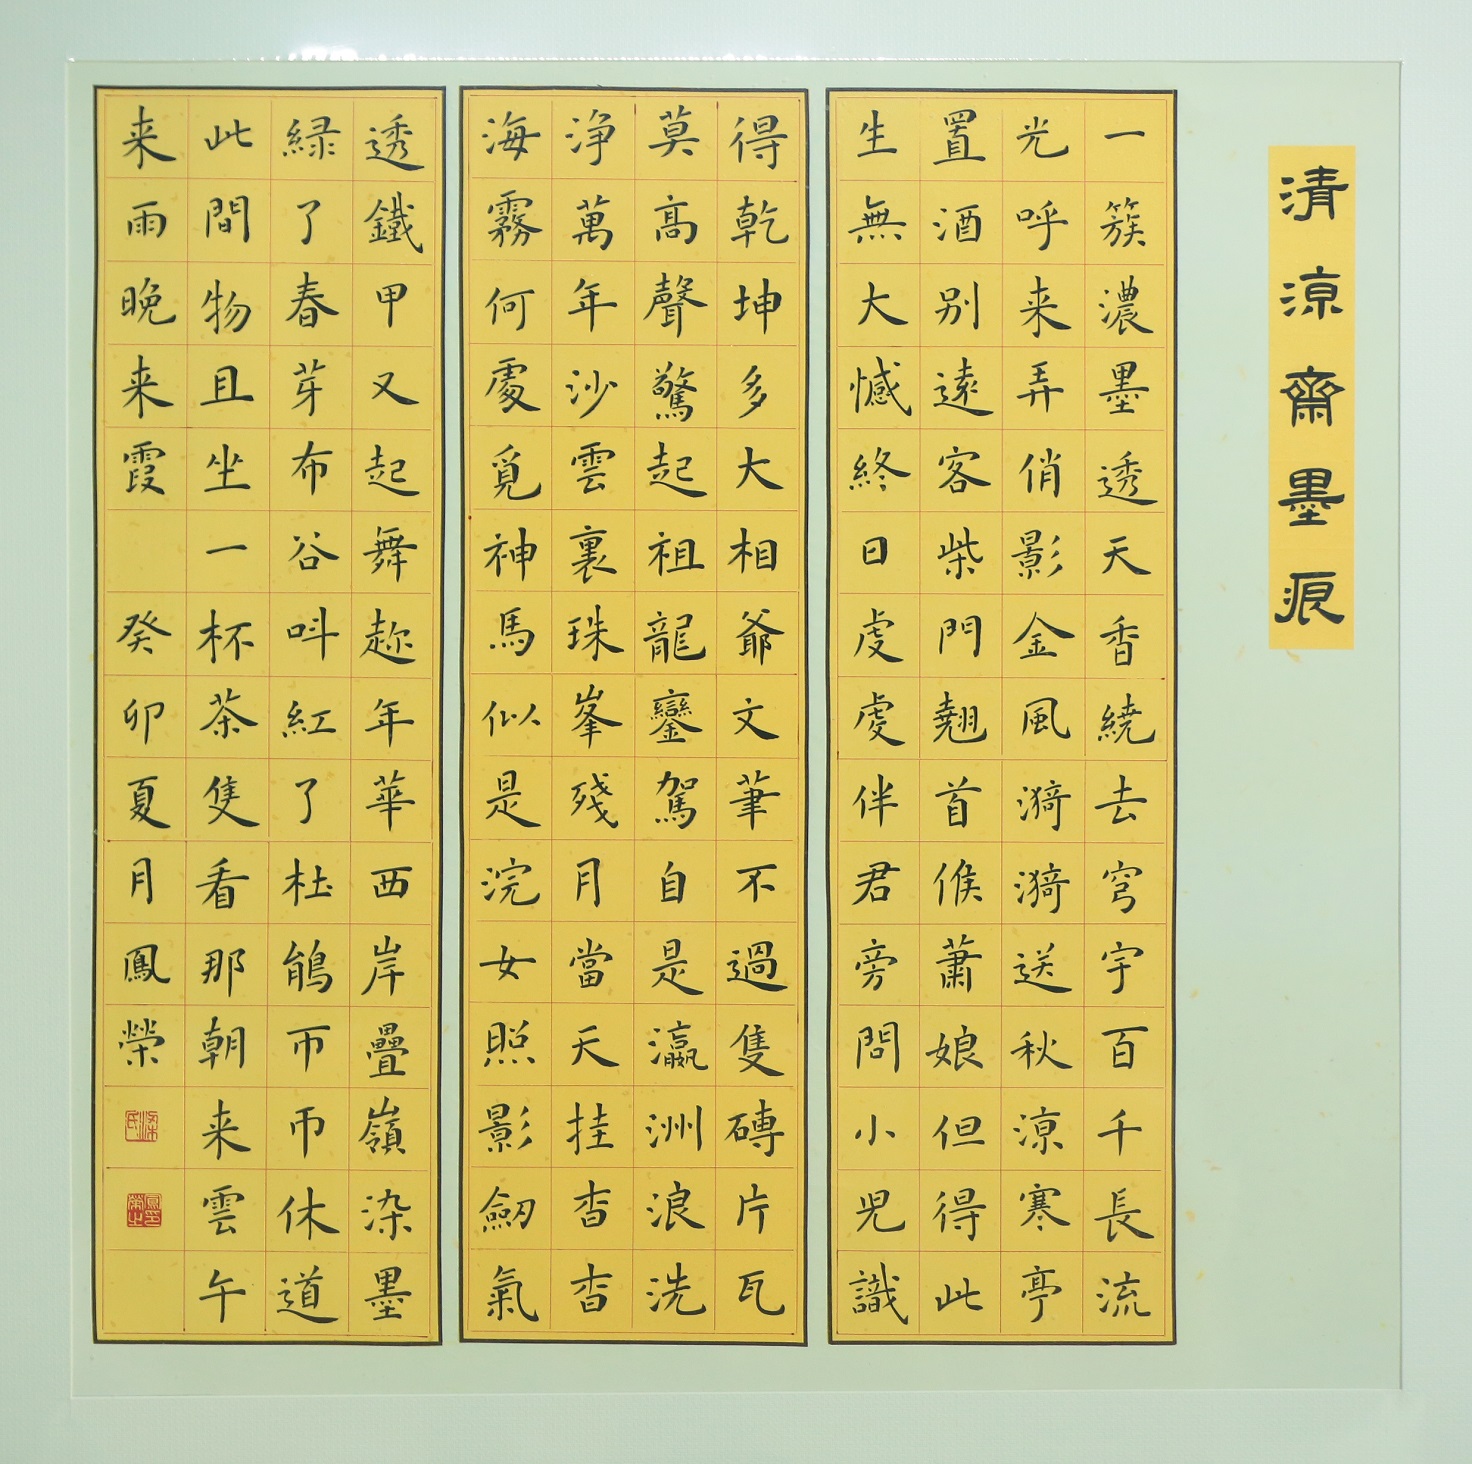 清涼齋墨痕
一簇濃墨透天香繞去穹宇百千長流
光呼来弄俏影金風漪漪送秋涼寒亭
置酒别遠客柴門翹首俟蕭娘但得此
生無大憾終日處處伴君旁問小児識
得乾坤多大相爺文筆不過隻磚片瓦
莫高聲驚起祖龍鑾駕自是瀛洲浪洗
浄萬年沙雲裏珠峯殘月當天挂杳杳
海霧何處覓神馬似是浣女照影劒氣
透鐵甲又起舞趂年華西岸疊嶺染墨
緑了春芽布谷叫紅了杜鵑帀帀休道
此間物且坐一杯茶隻看那朝来雲午
来雨晚来霞 癸卯夏月鳳榮